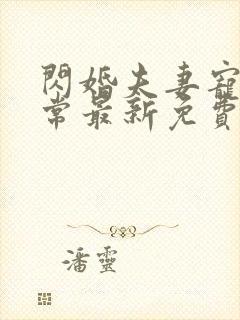 閃婚夫妻寵
常最新免費
潘靈